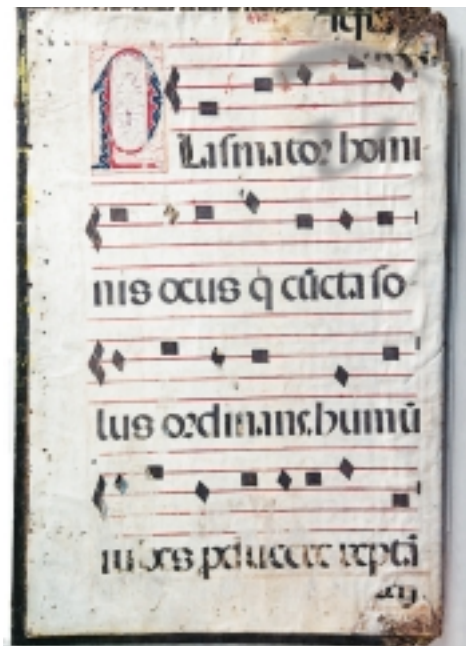 Plaſmator homi
nis deus q̇ cūcta ſo
lus ordinans.humū
iubes ꝓducere reptā